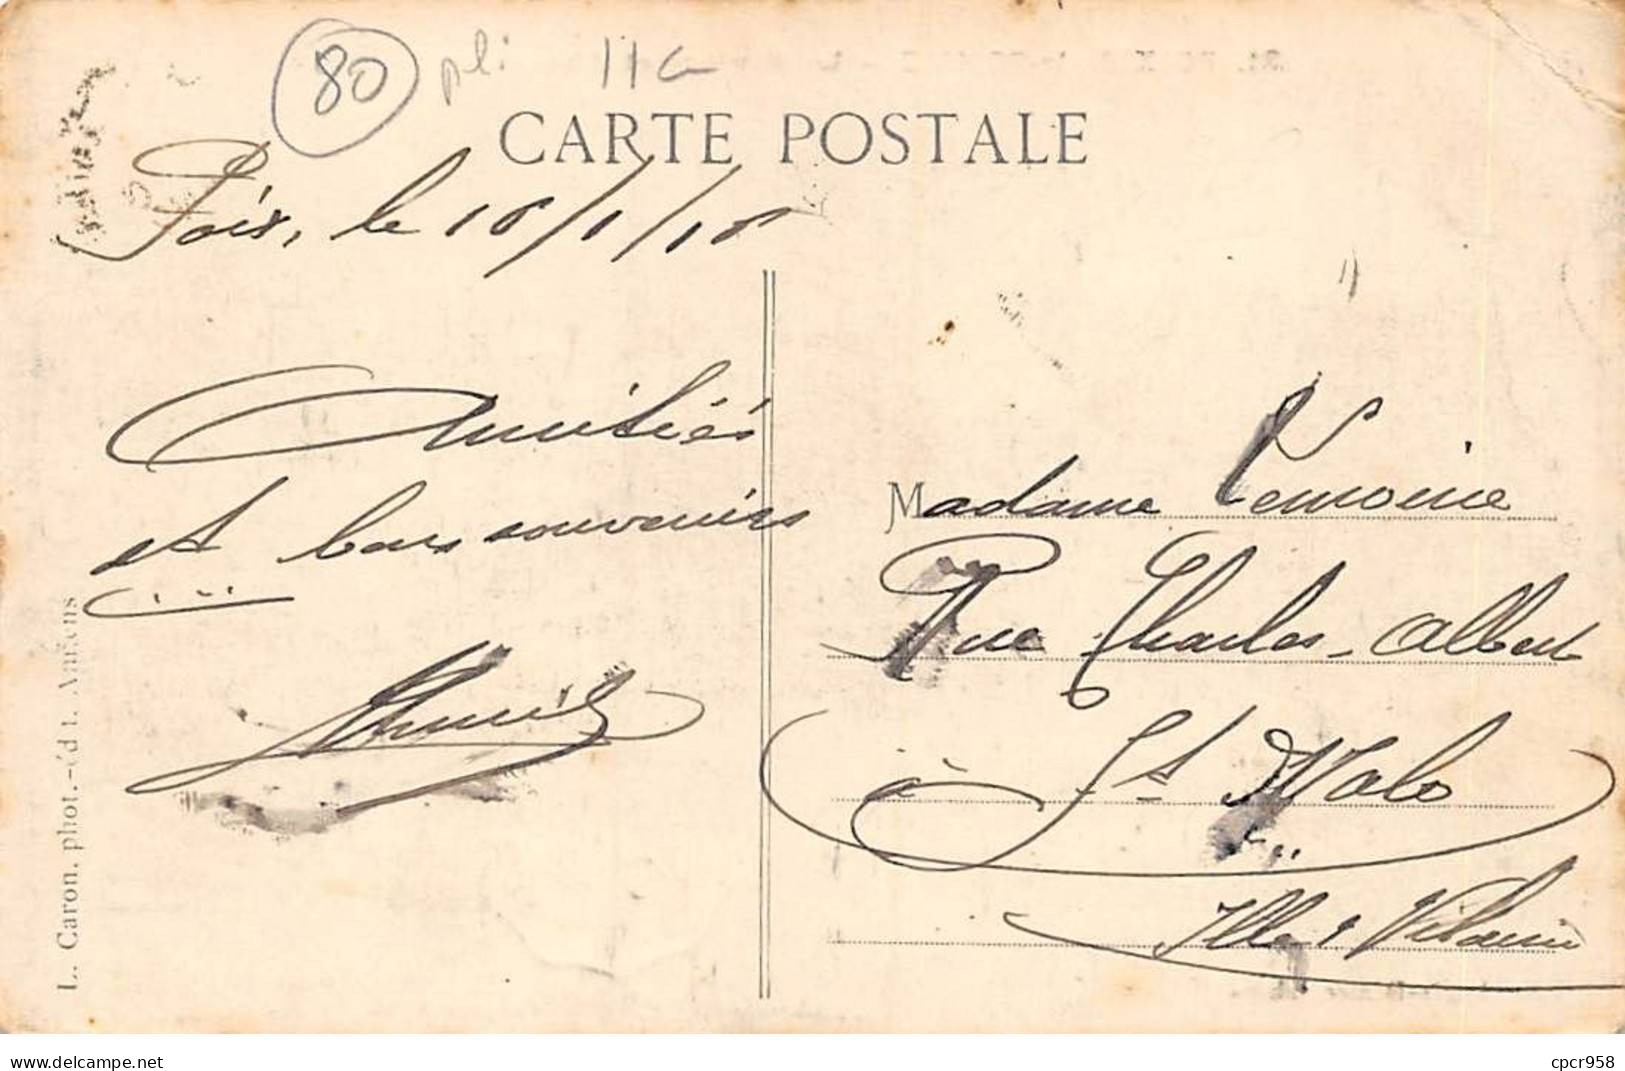 80 pli 11G
CARTE POSTALE
Poix, le 18/1/18
Amitiés
et bons souvenirs
Madame Lemoine
Rue Charles-Albert
à St Malo
Ille & Vilaine
L. Caron. phot.-éd t. Amiens
www.delcampe.net
cpcr958